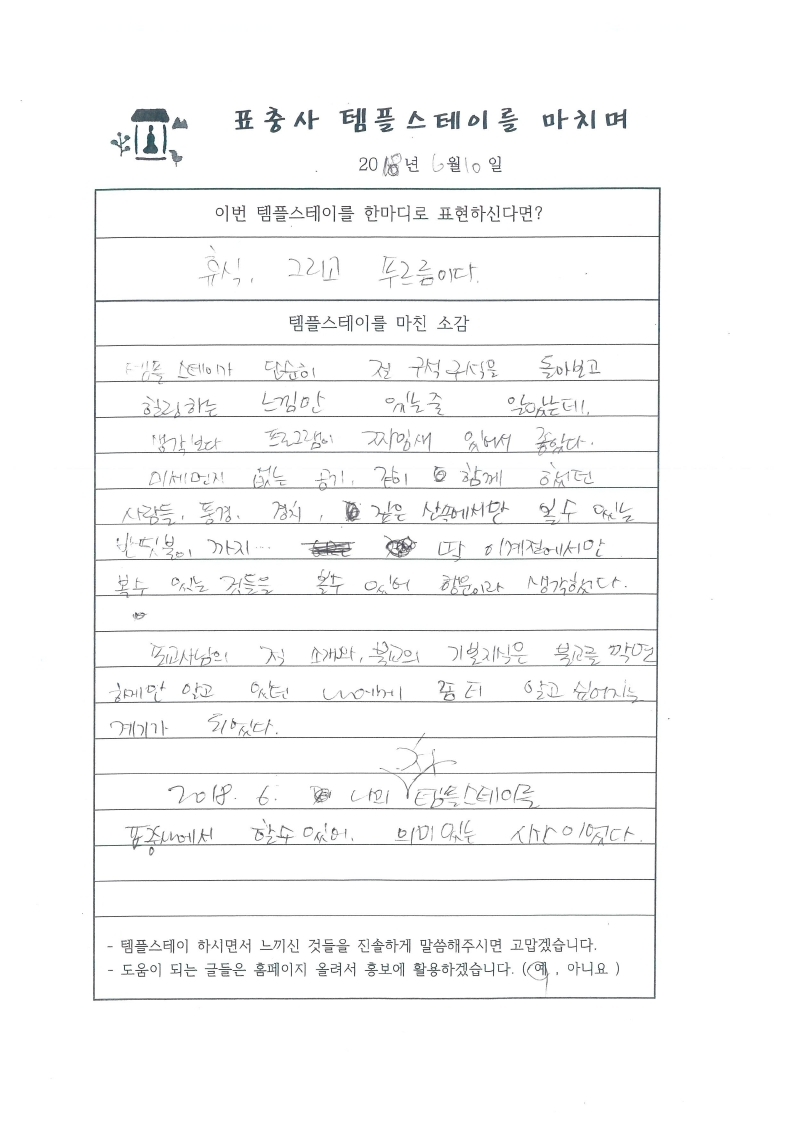 표충사 템플스테이를 마치며
2018년 6월 10일
이번 템플스테이를 한마디로 표현하신다면?
휴식, 그리고 푸르름이다.
템플스테이를 마친 소감
템플 스테이가 단순히 절 구석구석을 돌아보고
힐링하는 느낌만 있는줄 알았는데,
생각보다 프로그램이 짜임새 있어서 좋았다.
미세먼지 없는 공기, 같이 함께 했던
사람들, 풍경, 경치, 깊은 산속에서만 볼수 있는
반딧불이 까지... 딱 이계절에서만
볼수 있는 것들을 볼수 있어 행운이라 생각했다.
포교사님의 절 소개와, 불교의 기별지식은 불교를 막연
하게만 알고 있던 나에게 좀 더 알고 싶어지는
계기가 되었다.
첫
2018. 6. 나의 템플스테이를
표충사에서 할수 있어, 의미 있는 시간이었다.
- 템플스테이 하시면서 느끼신 것들을 진솔하게 말씀해주시면 고맙겠습니다.
- 도움이 되는 글들은 홈페이지 올려서 홍보에 활용하겠습니다. (예, 아니요 )